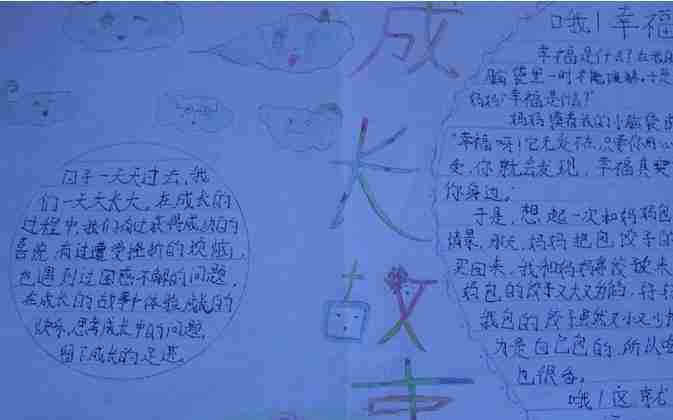 成
长
故
事
日子一天天过去,我
们一天天长大。在成长的
过程中,我们有过获得成功的
喜悦,有过遭受挫折的烦恼,
也遇到过困惑不解的问题,
在成长的故事中体验成长的
快乐,思考成长中的问题,
留下成长的足迹。
哦!幸福
幸福是什么?在我的
脑袋里一时不能理解,于是
妈妈"幸福是什么?"
妈妈摸着我的小脑袋说
"幸福呀!它无处不在,只要你用心
受,你就会发现,幸福其实
你身边。
于是,想起一次和妈妈包
情景。那天,妈妈把包饺子的
买回来,我和妈妈
妈包的饺子又大又
我包的饺子虽然又小又
为是自己包的,所以
也很香。
哦!这就